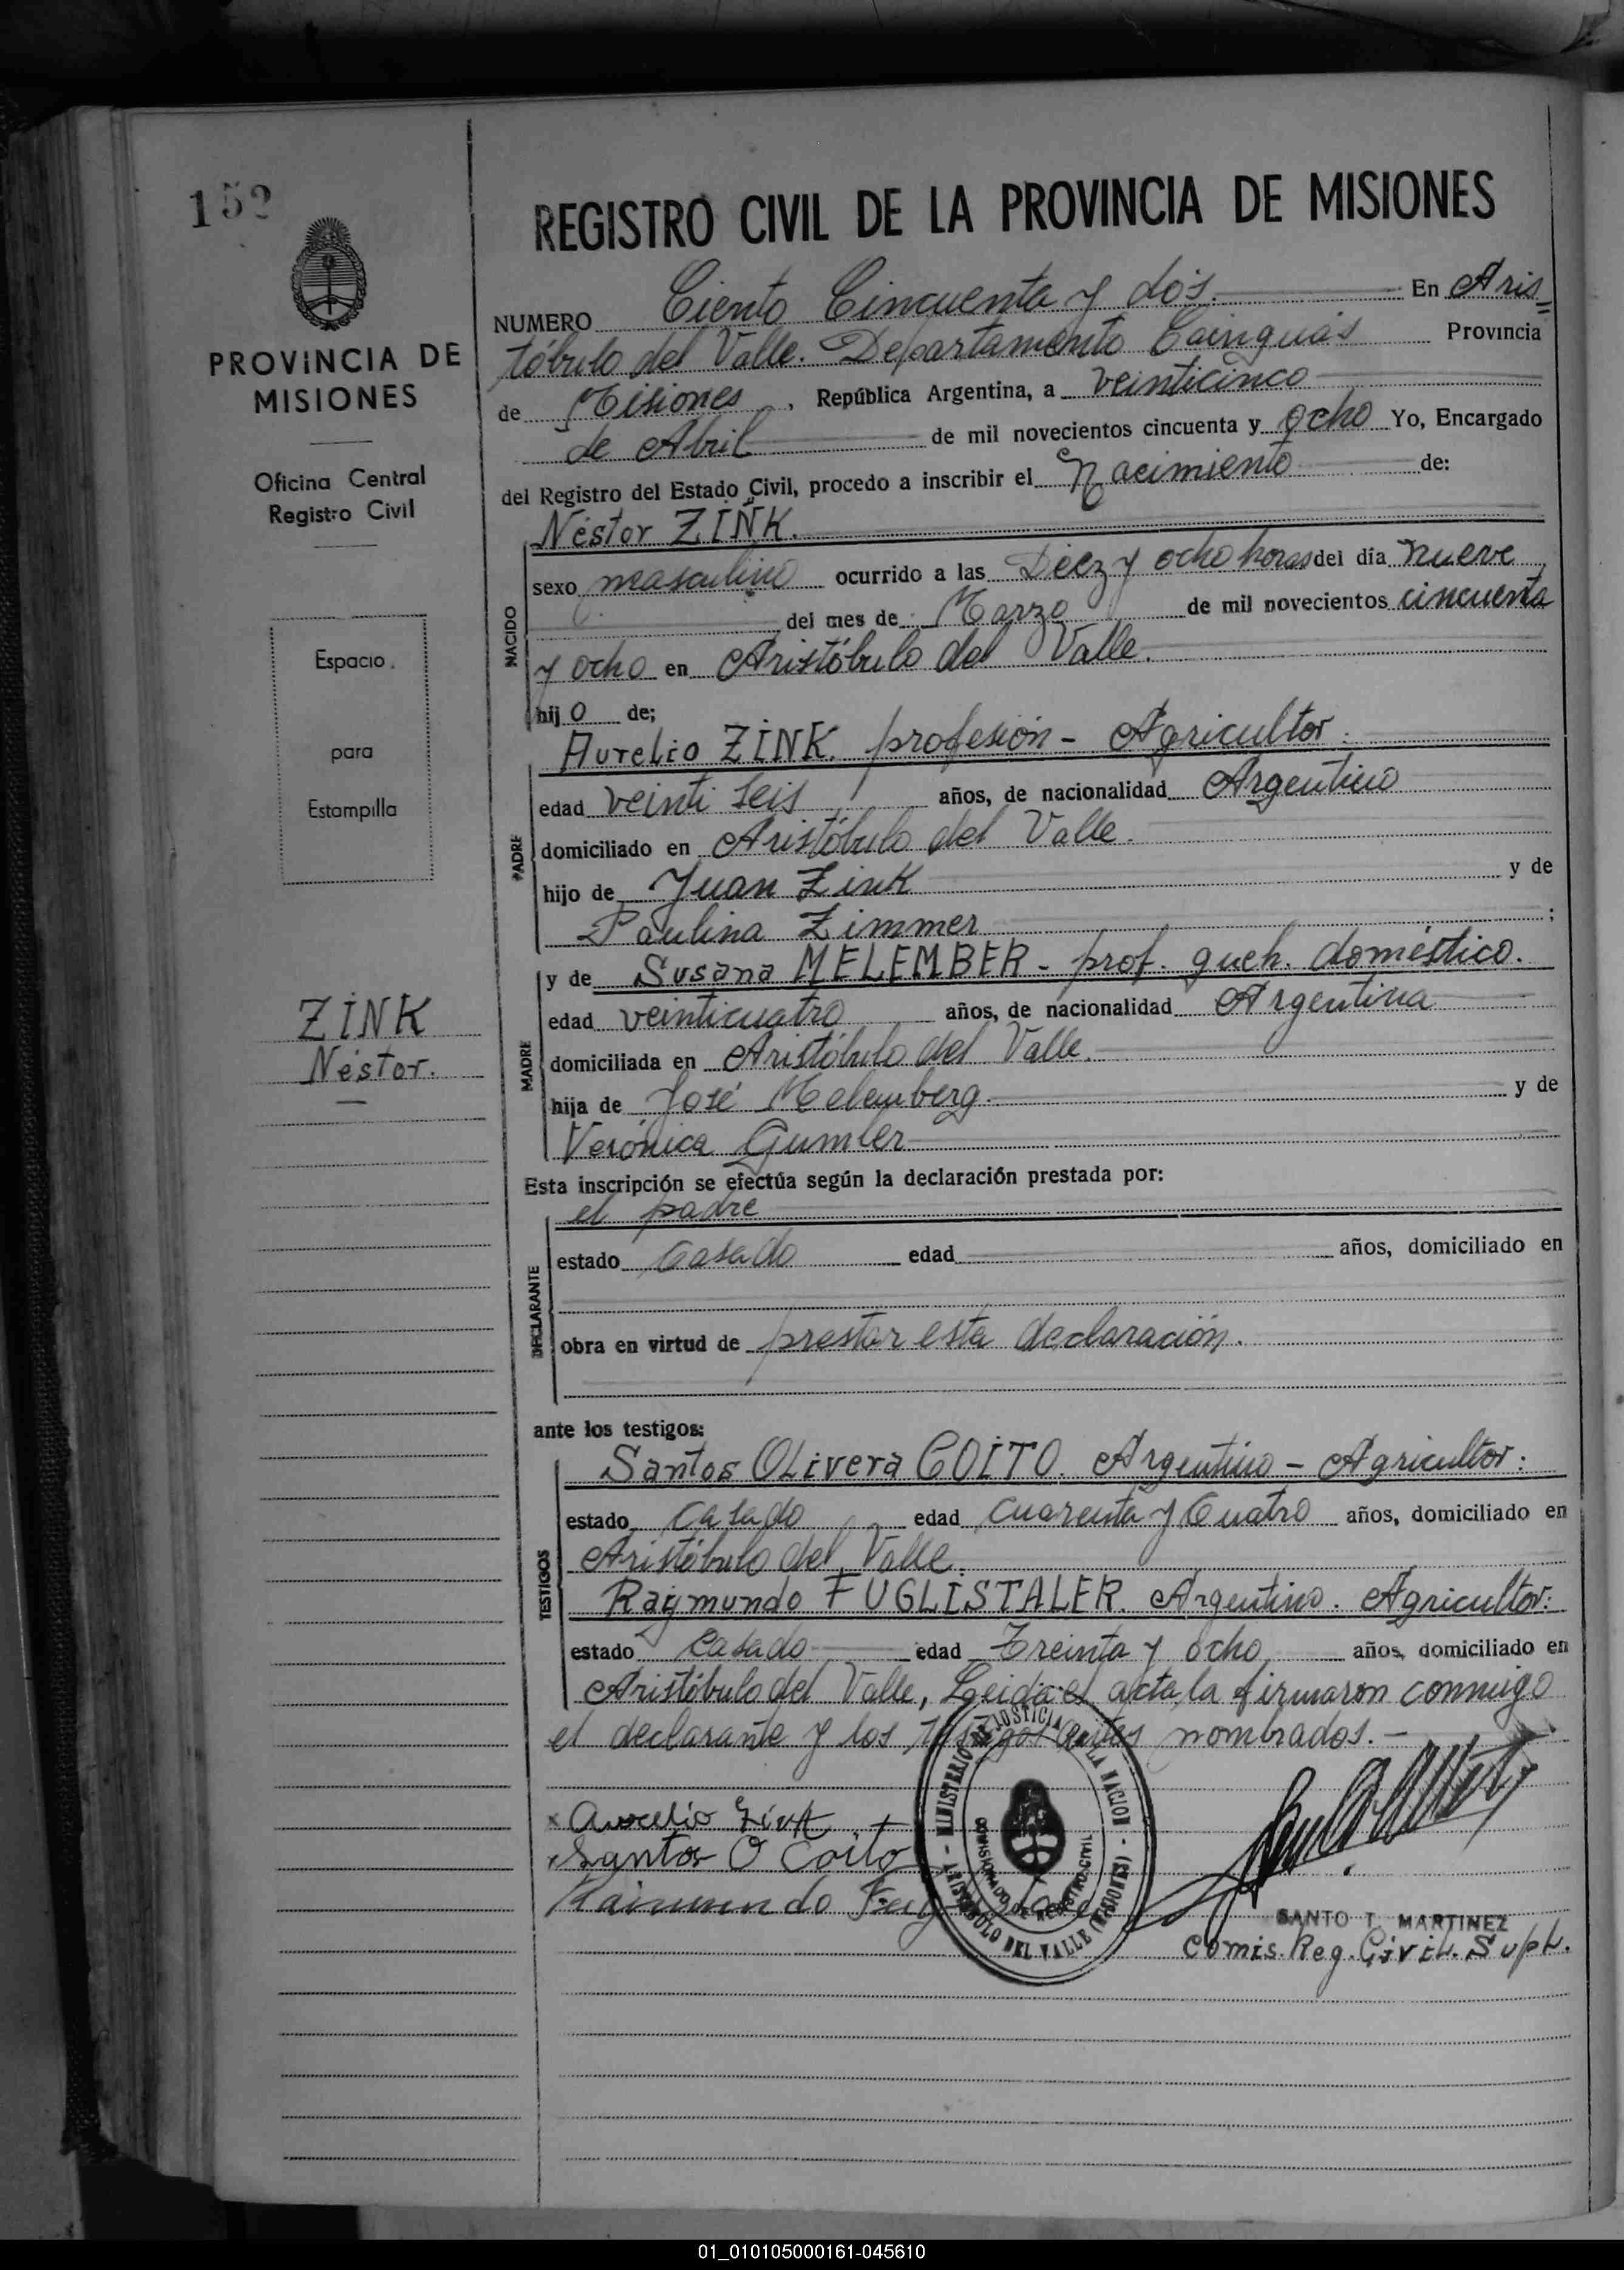 152
PROVINCIA DE
MISIONES
Oficina Central
Registro Civil
Espacio
para
Estampilla
ZINK
Néstor.
REGISTRO CIVIL DE LA PROVINCIA DE MISIONES
NUMERO Ciento Cincuenta y dos. En Aris=
tóbulo del Valle. Departamento Cainguás Provincia
de Misiones, República Argentina, a veinticinco
de Abril de mil novecientos cincuenta y ocho Yo, Encargado
del Registro del Estado Civil, procedo a inscribir el Nacimiento de:
Néstor ZINK.
NACIDO
sexo masculino ocurrido a las Diez y ocho horas del día nueve
del mes de Marzo de mil novecientos cincuenta
y ocho en Aristóbulo del Valle.
hijo de;
Aurelio ZINK. profesión - Agricultor.
PADRE
edad veinti seis años, de nacionalidad Argentino
domiciliado en Aristóbulo del Valle.
hijo de Juan Zink y de
Paulina Zimmer;
y de Susana MELEMBER - prof. queh. doméstico.
MADRE
edad veinticuatro años, de nacionalidad Argentina
domiciliada en Aristóbulo del Valle.
hija de José Melemberg y de
Verónica Gumler
Esta inscripción se efectúa según la declaración prestada por:
el padre
DECLARANTE
estado Casado edad años, domiciliado en
obra en virtud de prestar esta declaración.
ante los testigos:
Santos OLivera COITO. Argentino - Agricultor:
TESTIGOS
estado casado edad cuarenta y Cuatro años, domiciliado en
Aristóbulo del Valle.
Raymundo FUGLISTALER. Argentino. Agricultor:
estado Casado edad Treinta y ocho años, domiciliado en
Aristóbulo del Valle, Leida el acta, la firmaron conmigo
el declarante y los testigos antes nombrados.-
x Aurelio Zink
Santos O Coito
Raimundo
MINISTERIO DE JUSTICIA DE LA NACION - ARISTOBULO DEL VALLE (MISIONES) -
COMISIONADO DE REGISTRO CIVIL
SANTO T. MARTINEZ
Comis. Reg. Civil. Supl.
01_010105000161-045610